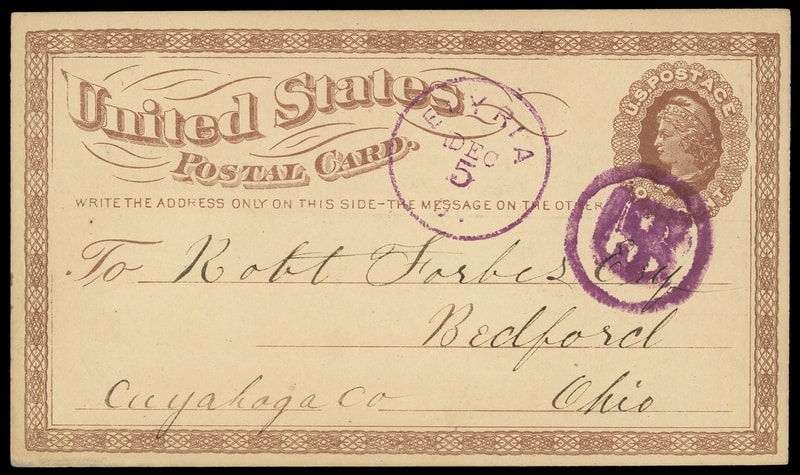 United States
POSTAL CARD.
U.S. POSTAGE
ELYRIA
DEC
5
O.
WRITE THE ADDRESS ONLY ON THIS SIDE–THE MESSAGE ON THE OTHER
To Robt Forbes Esq
Bedford
Cuyahoga Co Ohio